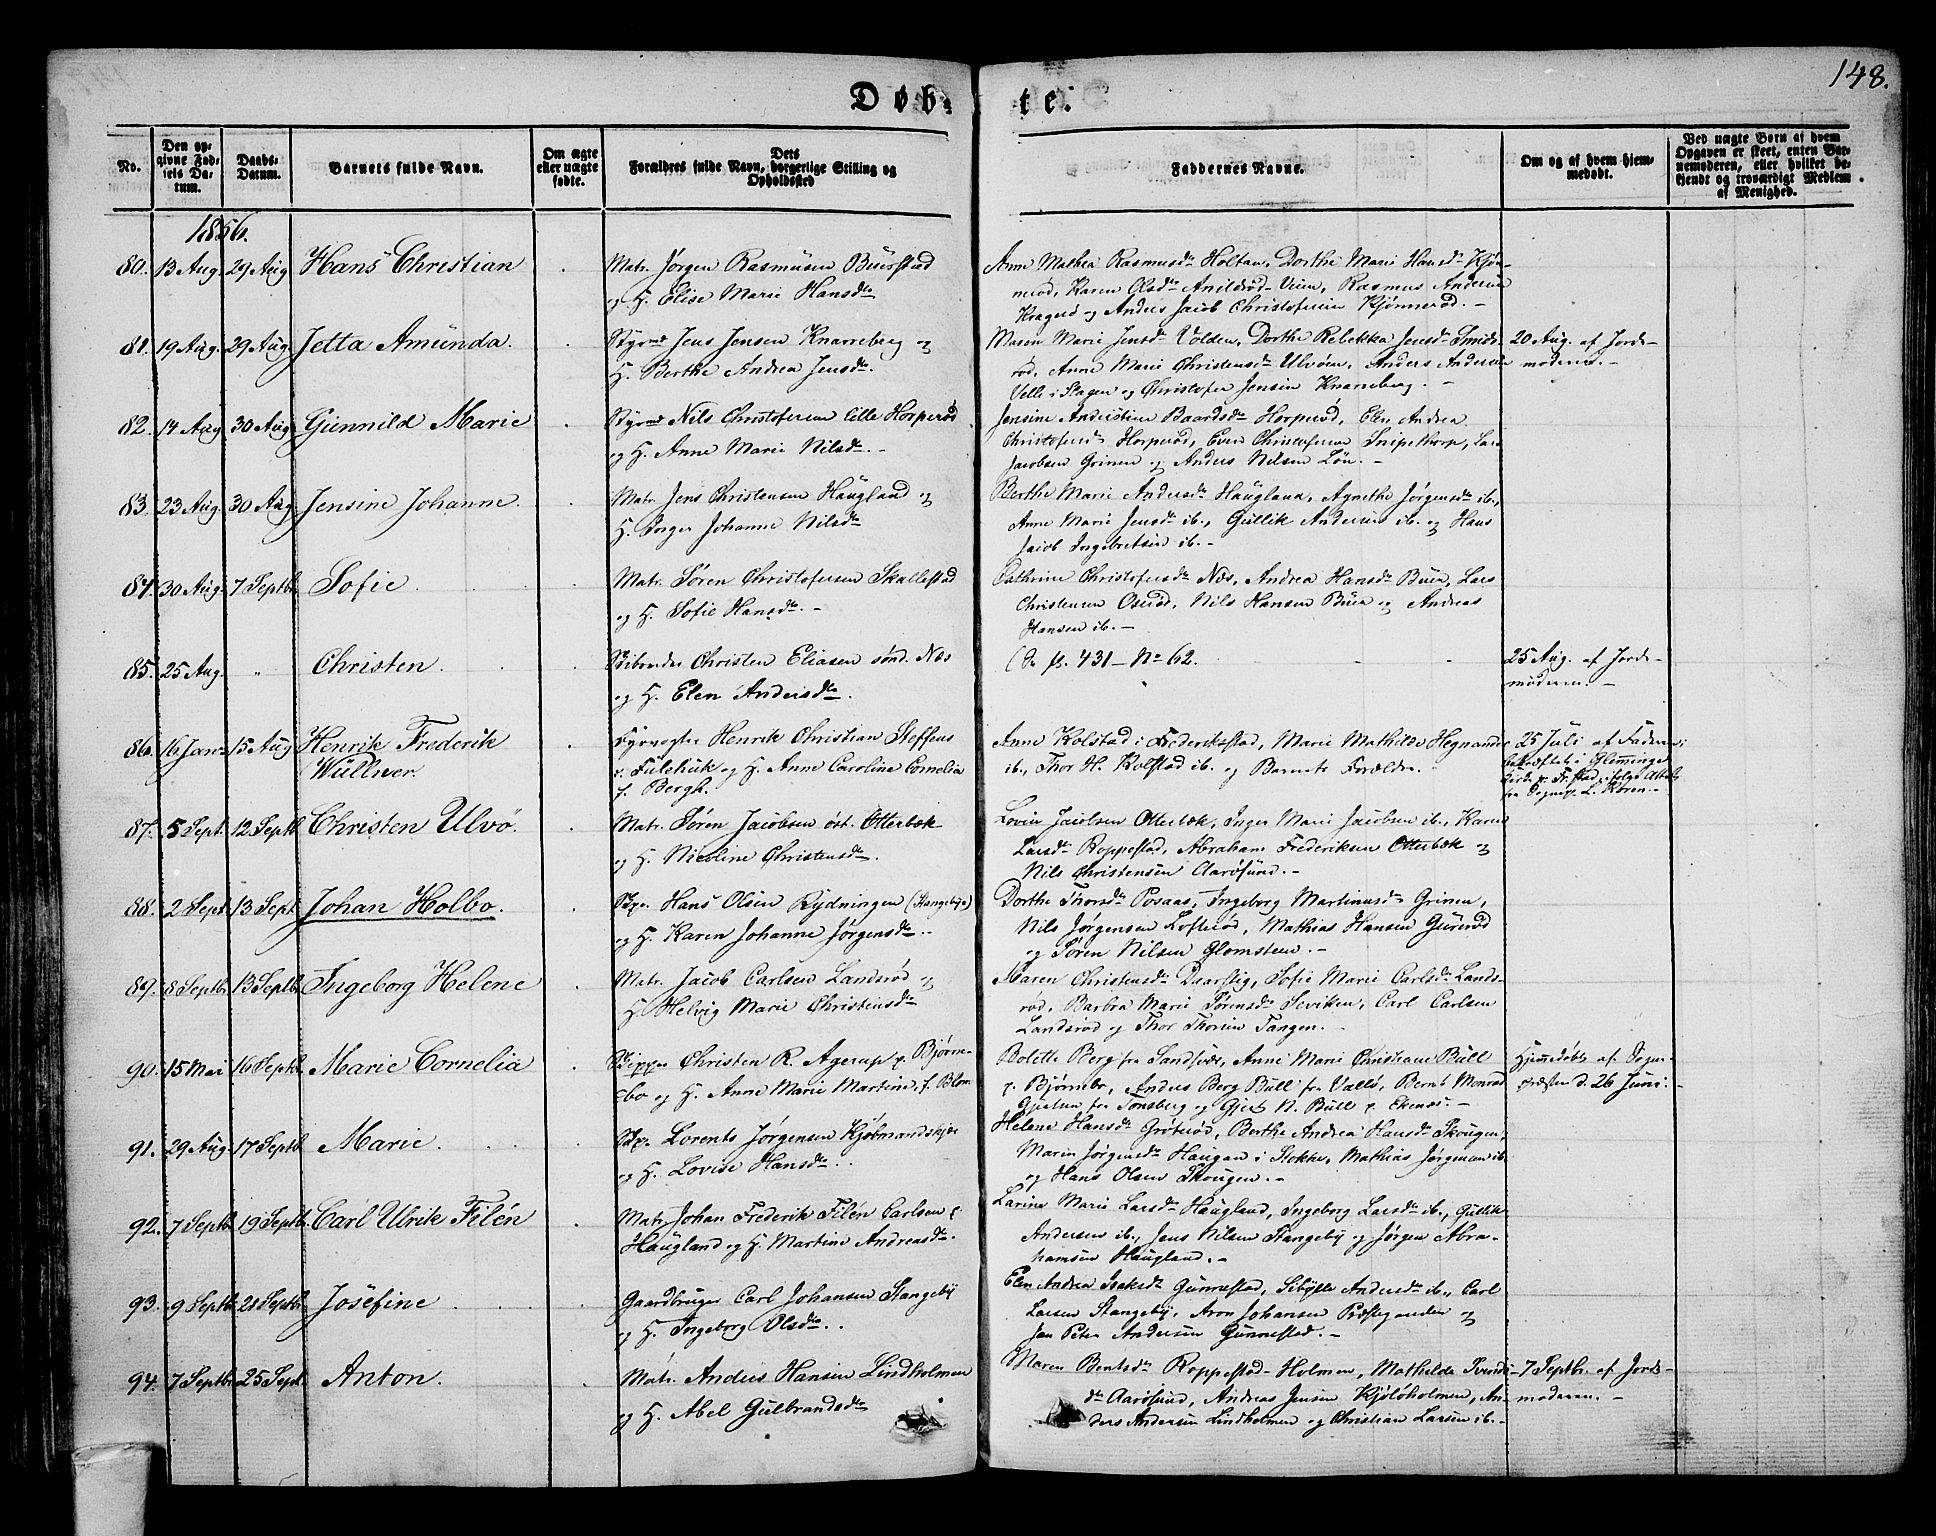 148.
Døb-te.
No.
Den opgivne Fødsels Datum.
Daabs-Datum.
Barnets fulde Navn.
Om ægte eller uægte fødte.
Dets Forældres fulde Navn, borgerlige Stilling og Opholdssted
Faddernes Navne.
Om og af hvem hjemmedøbt.
Ved uægte Børn af hvem Opgaven er skeet, enten Barnemoderen, eller hvilket bekjendt og troværdigt Medlem af Menighed.
1856.
80. 13 Aug. 29 Aug Hans Christian
Matr. Jørgen Rasmusen Buerstad
og H. Elise Marie Hansdtr
Anne Mathea Rasmusdr Holtan, Dorthe Marie Hansdr Kjøn-
nerød, Karen Olsdtr Anildrød-Veien, Rasmus Andersen
Kragerø og Anders Jacob Christofersen Kjønnerød. -
81. 19 Aug. 29 Aug. Jetta Amunda.
Styrmd Jens Jensen Knarreberg og
H. Berthe Andrea Jensdtr.
Maren Marie Jensdr Volden, Dorthe Rebekka Jensdr Smids-
rød, Anne Marie Christensdtr Ulvøen, Anders Andersen
Velle i Slagen og Christofer Jensen Knarreberg. -
20 Aug. af Jorde-
moderen. -
82. 14 Aug 30 Aug. Gunnild Marie
Styrmd Nils Christofersen lille Horperød
og H. Anne Marie Nilsdr. -
Jensine Anderstine Baardsdtr Horperød, Elen Andrea
Christofersdr Horperød, Even Christofersen Snipetorp, Lars
Jacobsen Grinen og Anders Nilsen Løn. -
83. 23 Aug. 30 Aug. Jensine Johanne.
Matr. Jens Christensen Haugland og
H. Inger Johanne Nilsdtr
Berthe Marie Andersdtr Haugland, Agnethe Jørgensdtr ib.,
Anne Marie Jensdr ib., Gullik Andersen ib. og Hans
Jacob Ingebretsen ib. -
84. 30 Aug. 7 Septbr. Sofie.
Matr. Søren Christofersen Skallestad
og H. Sofie Hansdtr. -
Cathrine Christofersdtr Næs, Andrea Hansdtr Buer, Lars
Christensen Oserød, Nils Hansen Buer og Andreas
Hansen ib. -
85. 25 Aug. " Christen.
Christen Eliasen sønd. Næs
og H. Elen Andersdtr.
(Se fl. 431 - No 62.
25 Aug. af Jorde-
moderen. -
86. 16 Janr 15 Aug Henrik Frederik
Wüllner.
Fyrvogter Henrik Christian Steffens
p. Fulehuk og H. Anne Caroline Cornelia
f. Bergh.
Anne Kolstad i Frederikstad, Marie Mathilde Hegnander
ib., Thor H. Kolstad ib. og Barnets Forældre. -
25 Juli af Faderen;
bekræftet i Glemminge
Kirke p. Fr.stad, ifølge Attest
fra Sognep. L. Koren. -
87. 5 Sept. 12 Septb. Christen Ulvø.
Matr. Søren Jacobsen øst. Otterbæk
og H. Nicoline Christensdtr.
Lovise Jacobsen Otterbæk, Inger Marie Jacobsen ib., Karen
Larsdtr Roppestad, Abraham Frederiksen Otterbæk og
Nils Christensen Aarøsund. -
88. 2 Sept. 13 Sept. Johan Holbo.
Skpr. Hans Olsen Rydningen (Stangebye)
og H. Karen Johanne Jørgensdtr. -
Dorthe Thorsdtr Posaas, Ingeborg Martinusdr Grinen,
Nils Jørgensen Lofterød, Mathias Hansen Gurerød
og Søren Nilsen Glomsten. -
89. 8 Septbr. 13 Septbr. Ingeborg Helene
Matr. Jacob Carlsen Landsrød og
H. Helvig Marie Christensdtr
Maren Christensdr Daarstig, Sofie Marie Carlsdtr Lands-
rød, Barbra Marie Sørensdr Seviken, Carl Carlsen
Landsrød og Thor Thorsen Tangen. -
90. 15 Mai 16 Septbr. Marie Cornelia
Skipper Christen R. Agerup p. Bjørne-
bo og H. Anne Marie Martine, f. Blom
Bolette Berg fra Sandsvær, Anne Marie Christiane Bull
p. Bjørnebo, Anders Berg Bull fra Vallø, Bernt Monrad
fra Tønsberg og Gjert N. Bull p. Ekenæs. -
Hjemmedøbt af Sogne-
præsten d. 26 Juni. -
91. 29 Aug. 17 Septb. Marie.
Skpr. Lorents Jørgensen Kjøbmandskjær
og H. Lovise Hansdtr. .
Helene Hansdr Grøterød, Berthe Andrea Hansdr Skougen,
Maren Jørgensdr Haugan i Stokke, Mathias Jørgensen ib.
og Hans Olsen Skougen. -
92. 7 Septbr. 19 Septbr. Carl Ulrik Filén
Matr. Johan Frederik Filén Carlsen p.
Haugland og H. Martine Andreasdtr.
Larine Marie Larsdtr Haugland, Ingeborg Larsdtr ib., Gullik
Andersen ib., Jens Nilsen Stangeby og Jørgen Abra-
hamsen Haugland. -
93. 9 Septbr. 21 Septbr. Josefine
Gaardbruger Carl Johansen Stangeby
og H. Ingeborg Olsdtr. .
Elen Andrea Isaksdr Gunnestad, Sibylle Andersdtr ib., Carl
Larsen Stangeby, Aron Johansen Præstegaarden og
Jan Peter Andersen Gunnestad. -
94. 7 Septbr. 25 Sept. Anton.
Matr. Anders Hansen Lindholmen
og H. Abel Gulbrandsdtr
Maren Berntsdtr Roppestad-Holmen, Mathilde Svends-
dtr Aarøsund, Andreas Jensen Kjøløholmen, An-
ders Andersen Lindholmen og Christian Larsen ib. -
7 Septbr. af Jorde-
moderen. -